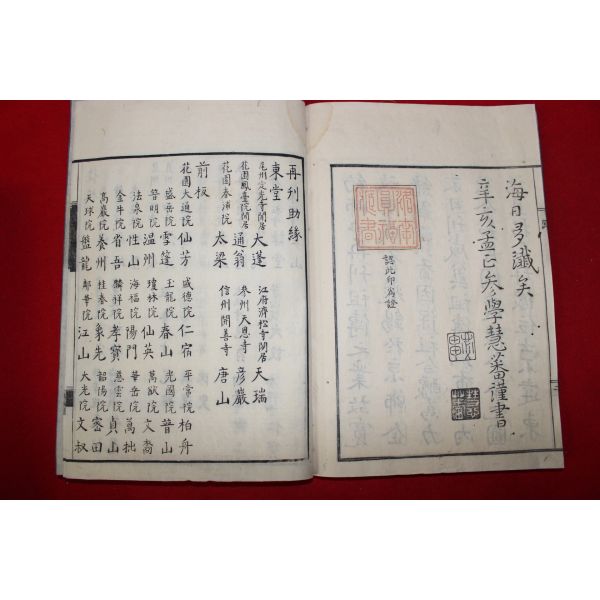 海日多讖矣
辛亥孟正参學慧蕃謹書
認此印為證
再刊助緣
東堂
尾州定光寺閑居 大蓬 江府濟松寺閑居 天瑞
花園鳳臺院閑居 通翁 參州天恩寺 彦巖
花園春浦院 太梁 信州開善寺 唐山
前板
花園大通院 仙芳 盛德院 仁宿 平常院 柏舟
盛岳院 雪篷 玉龍院 春山 光國院 普山
普明院 溫州 瓊林院 仙英 萬獻院 文喬
法泉院 性山 海福院 陽門 華岳院 萬拙
金牛院 省吾 麟祥院 孝寶 慈雲院 貞山
高巖院 養州 桂春院 象先 韶陽院 密田
天球院 盤龍 鄰華院 江山 大光院 文叔